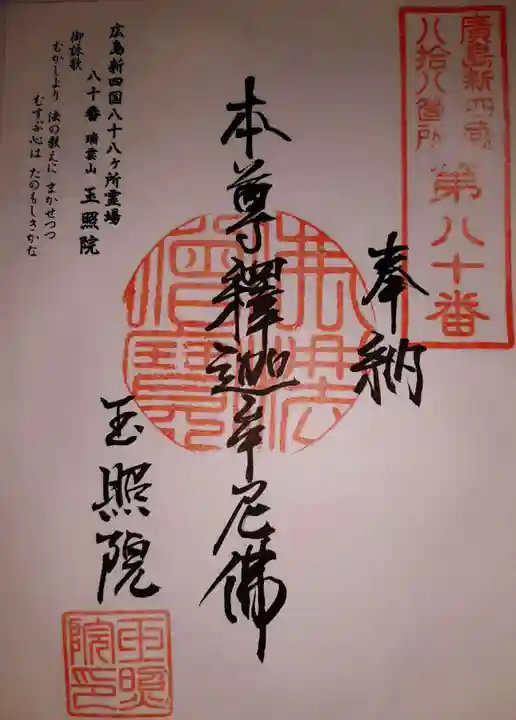 廣島新四國
八拾八箇所
第八十番
奉納
本尊釋迦牟尼佛
佛法僧寳
玉照院
玉照院印
広島新四国八十八ヶ所霊場
八十番 瑞雲山 玉照院
御詠歌
むかしより 法の教えに まかせつつ
むすぶ心は たのもしきかな